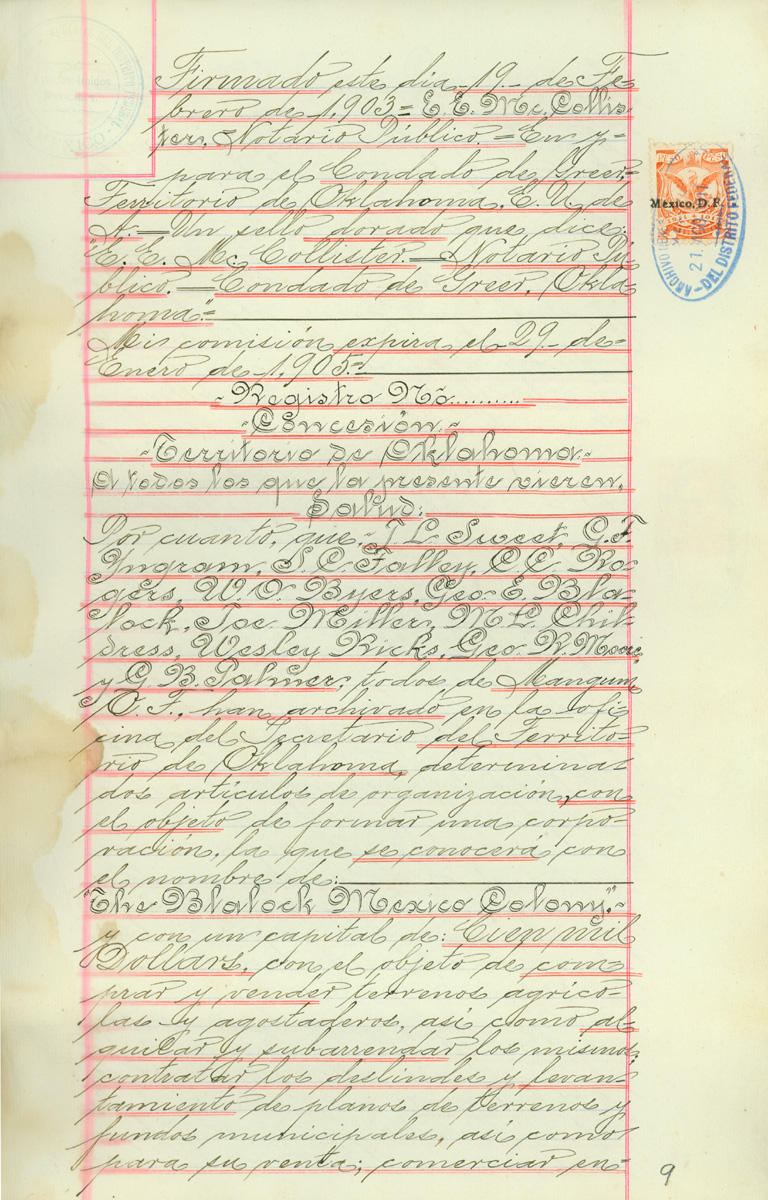 Firmado este dia 19.- de Fe-
brero de 1,903= E. E. Mc. Collis-
ter, Notario Público.=En y-
para el Condado de Greer-
Territorio de Oklahoma, E. U. de
A.—Un sello dorado que dice:
"E. E. Mc Collister.—Notario Pú-
blico.—Condado de Greer, Okla
homa"=
Mi comisión expira el 29- de-
Enero de 1,905.=
-Registro No..........
-Concesión.-
-Territorio de Oklahoma.-
A todos los que la presente vieren,
Salud:
Por cuanto, que, J. L. Sweet, G. F.
Yngram, S. C. Falley, C. C. Ro-
gers, W. O. Byers, Geo. E. Bla-
lock, Joe Miller, M. L. Chil-
dress, Wesley Ricks, Geo. R. Moore
y G. B. Palmer, todos de Mangum,
O. T., han archivado en la ofi-
cina del Secretario del Territo-
rio de Oklahoma, determina-
dos artículos de organización, con
el objeto de formar una corpo-
ración, la que se conocerá con
el nombre de:
"The Blalock Mexico Colony."-
y con un capital de: Cien mil
Dollars, con el objeto de com-
prar y vender terrenos agríco-
las y agostaderos, así como al-
quilar y subarrendar los mismos;
contratar los deslindes y levan-
tamiento de planos de terrenos y
fundos municipales, así como
para su venta; comerciar en-
9
PESO PESO
México, D. F.
21
DEL DISTRITO FEDERAL